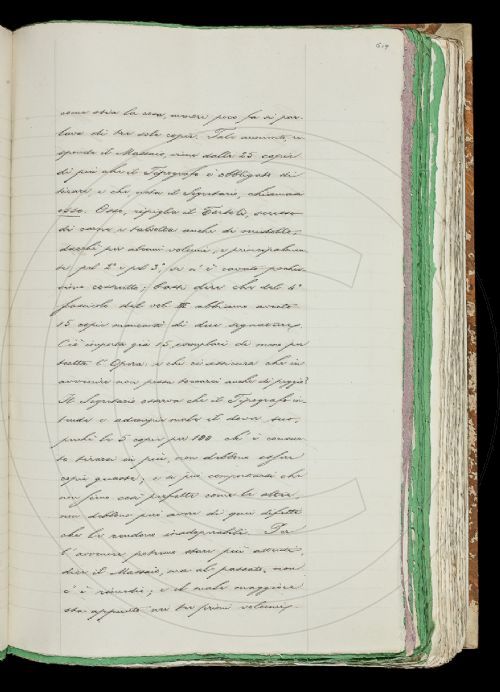 619
come stia la cosa, mentre poco fa si par-
lava di tre sole copie. Tale aumento, ri-
sponde il Massaio, viene dalle 25 copie
di più che il Tipografo è obbligato di
tirare e che, nota il Segretario, chiamasi
Esse, ripiglia il
di carta e talvolta anche da
dacché per alcuni volumi, e principalmen-
te pel 2° e pel 3°, se n'è cavato pochis-
simo costrutto; basti dire che del 4°
fascicolo del vol. III abbiamo avuto
15 copie mancanti di due segnature.
Ciò importa già 15 esemplari di meno per
tutta l'Opera: e chi ci assicura che in
avvenire non possa toccarci anche di peggio?
Il Segretario osserva che il Tipografo in-
tende e adempie male il dover suo,
perché le 5 copie per 100 che è
te tirarsi in più, non debbono esser
copie guaste; e si può comportarsi che
non sieno così perfette come le altre,
non debbono però avere di quei difetti
che le rendono inadoprabili. Per
l'avvenire potremo stare più attenti,
dice il Massaio, ma al passato non
c'è rimedio; e il male maggiore
sta appunto nei tre primi volumi,